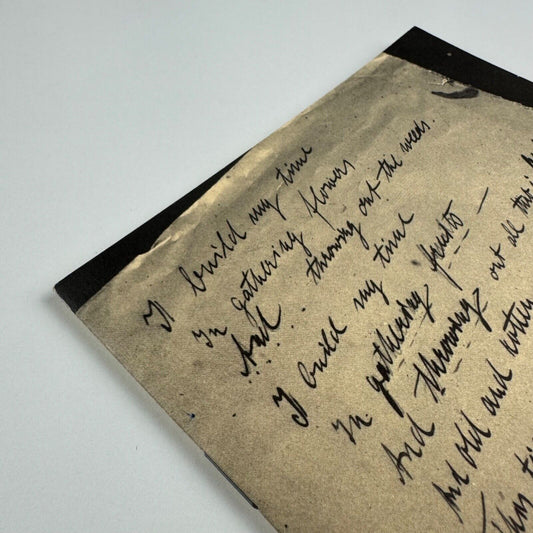 I build my time
In gathering flowers
And throwing out the weeds.
I build my time
In gathering fruits —
And throwing out all that is
and old and rotten
This